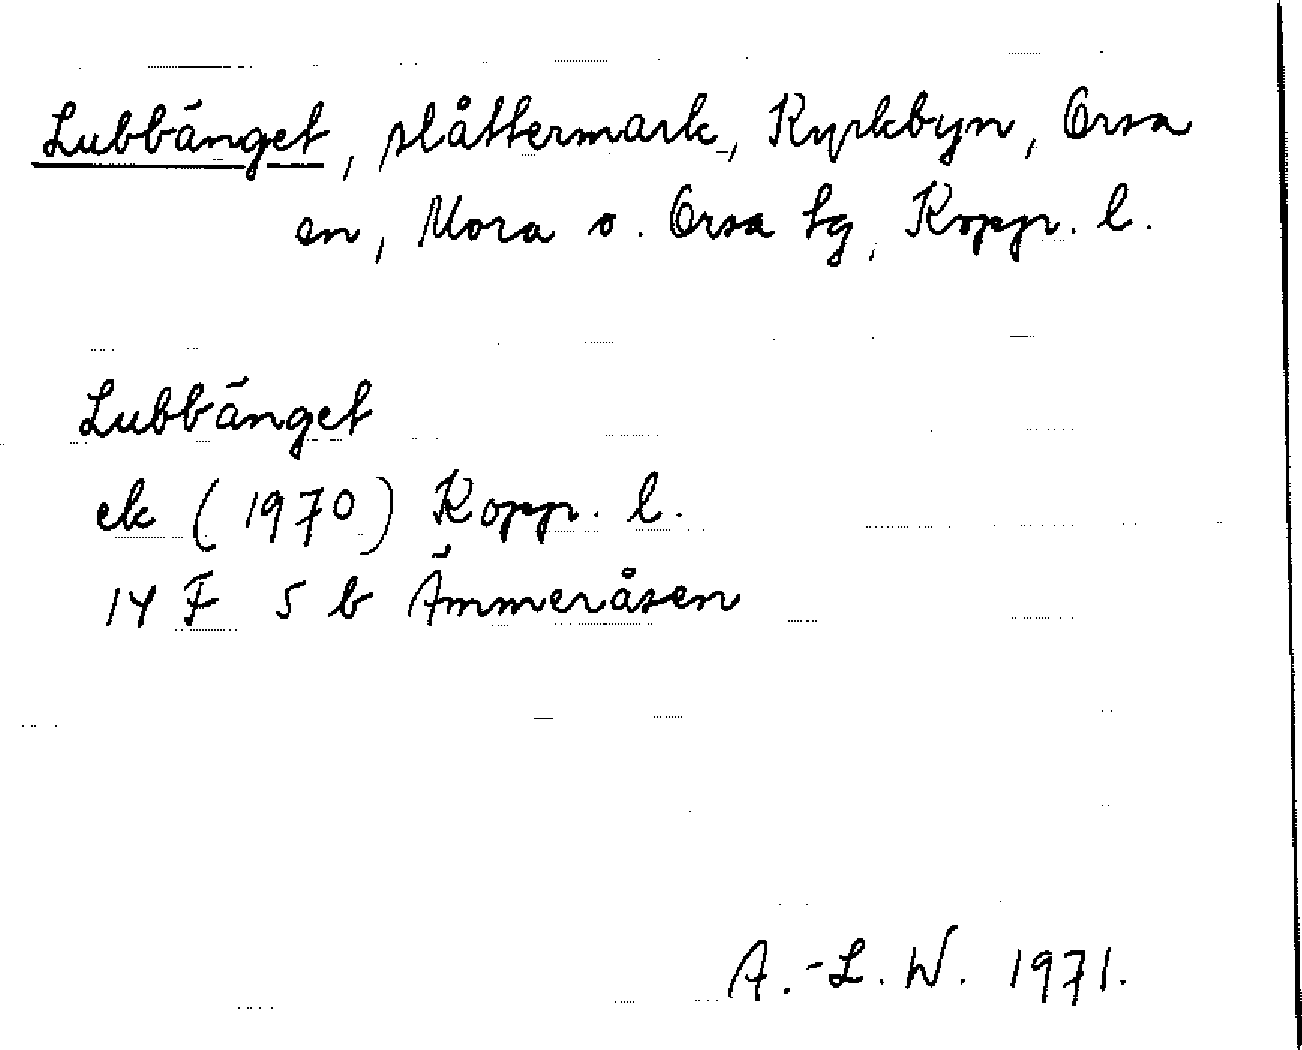 Lubbänget, slåttermark, Kyrkbyn, Orsa
sn, Mora o. Orsa tg, Kopp. l.
Lubbänget
ek (1970) Kopp. l.
14 F 5 b Ämmeråsen
A.-L. W. 1971.